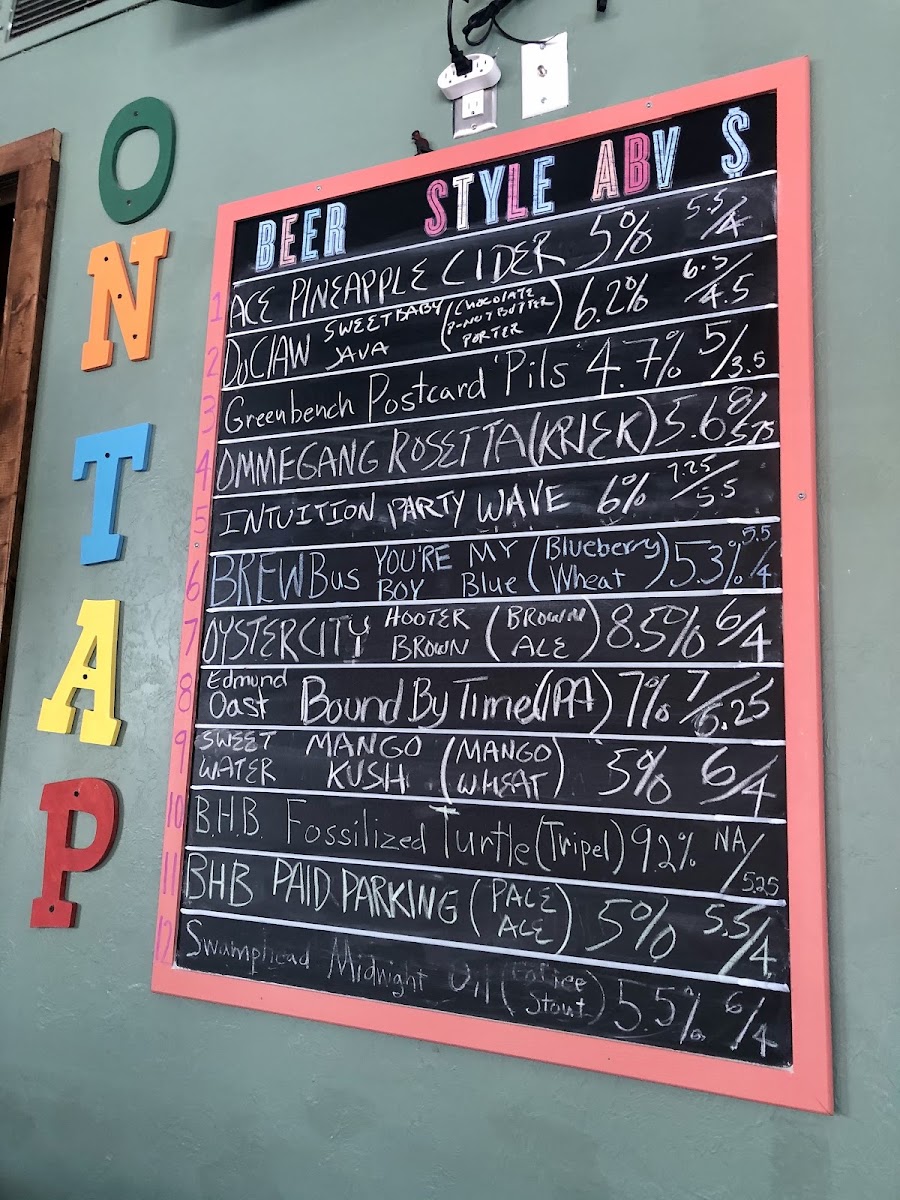 ON TAP
BEER STYLE ABV $
1 ACE PINEAPPLE CIDER 5% 5.5/4
2 DuClAW SWEET BABY JAVA (CHOCOLATE P-NUT BUTTER PORTER) 6.2% 6.5/4.5
3 Greenbench Postcard 'Pils' 4.7% 5/3.5
4 OMMEGANG ROSETTA (KRIEK) 5.6 8/5.75
5 INTUITION PARTY WAVE 6% 7.25/5.5
6 BREWBus YOU'RE MY BOY Blue (Blueberry Wheat) 5.3% 5.5/4
7 OYSTERCITY HOOTER BROWN (BROWN ALE) 8.5% 6/4
8 Edmund Oast Bound By Time (IPA) 7% 7/5.25
9 SWEET WATER MANGO KUSH (MANGO WHEAT) 5% 6/4
10 B.H.B. Fossilized Turtle (Tripel) 9.2% NA/5.25
11 BHB PAID PARKING (PALE ALE) 5% 5.5/4
12 Swamphead Midnight Oil (Coffee Stout) 5.5% 6/4